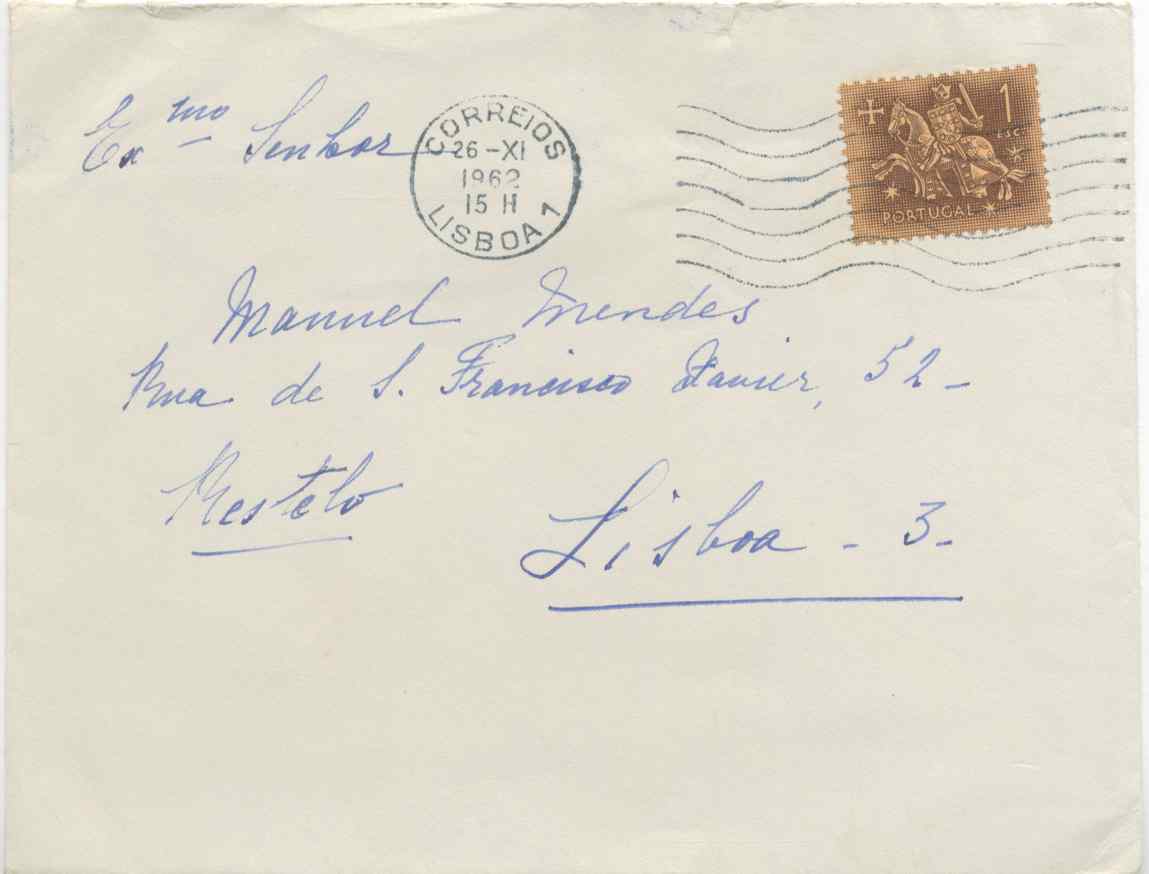 Exmo Senhor
CORREIOS
26-XI
1962
15 H
LISBOA 1
1
ESC.
PORTUGAL
Manuel Mendes
Rua de S. Francisco Xavier, 52-
Restelo
Lisboa - 3-